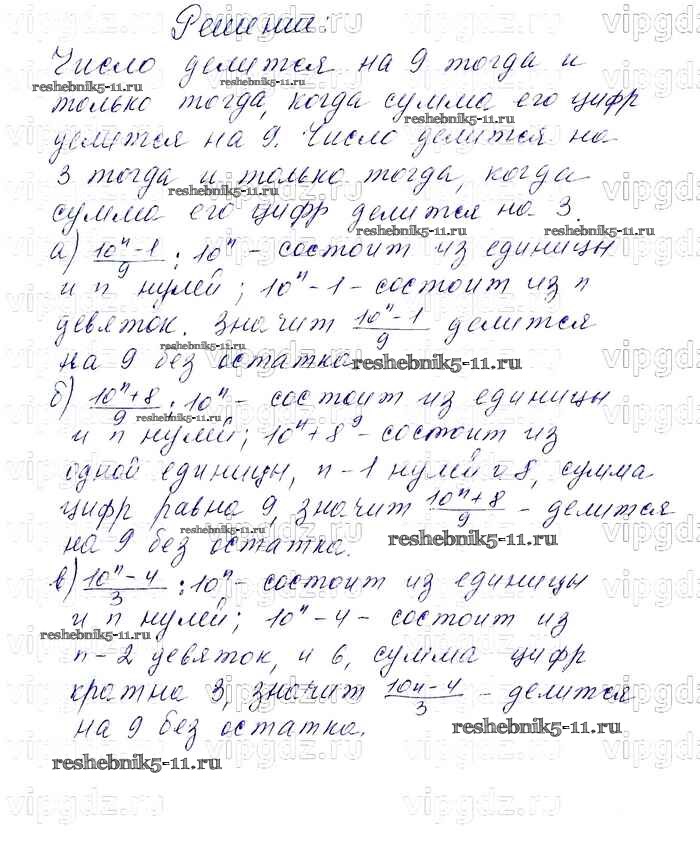 Решение:
Число делится на 9 тогда и
только тогда, когда сумма его цифр
делится на 9. Число делится на
3 тогда и только тогда, когда
сумма его цифр делится на 3.
а) (10ⁿ-1)/9 ; 10ⁿ - состоит из единицы
и n нулей; 10ⁿ-1 - состоит из n
девяток. Значит (10ⁿ-1)/9 делится
на 9 без остатка.
б) (10ⁿ+8)/9 ; 10ⁿ - состоит из единицы
и n нулей; 10ⁿ+8 - состоит из
одной единицы, n-1 нулей и 8, сумма
цифр равна 9, значит (10ⁿ+8)/9 - делится
на 9 без остатка.
в) (10ⁿ-4)/3 ; 10ⁿ - состоит из единицы
и n нулей; 10ⁿ-4 - состоит из
n-2 девяток, и 6, сумма цифр
кратна 3, значит (10n-4)/3 - делится
на 9 без остатка.
reshebnik5-11.ru
vipgdz.ru